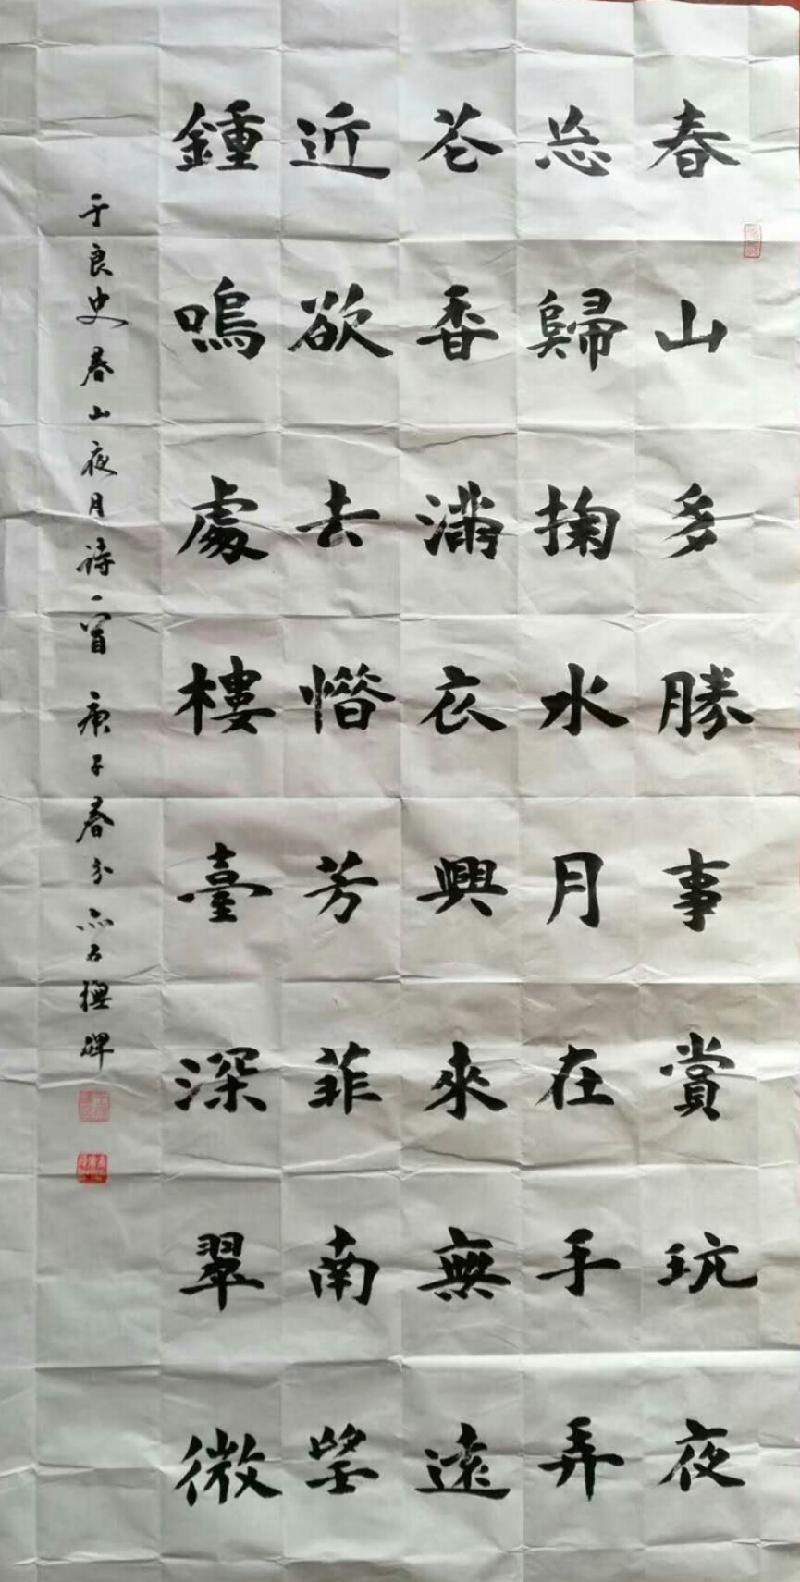 春山多勝事賞玩夜
忘歸掬水月在手弄
花香滿衣興來無遠
近欲去惜芳菲南望
鍾鳴處樓臺深翠微
于良史春山夜月詩一首 庚子春分